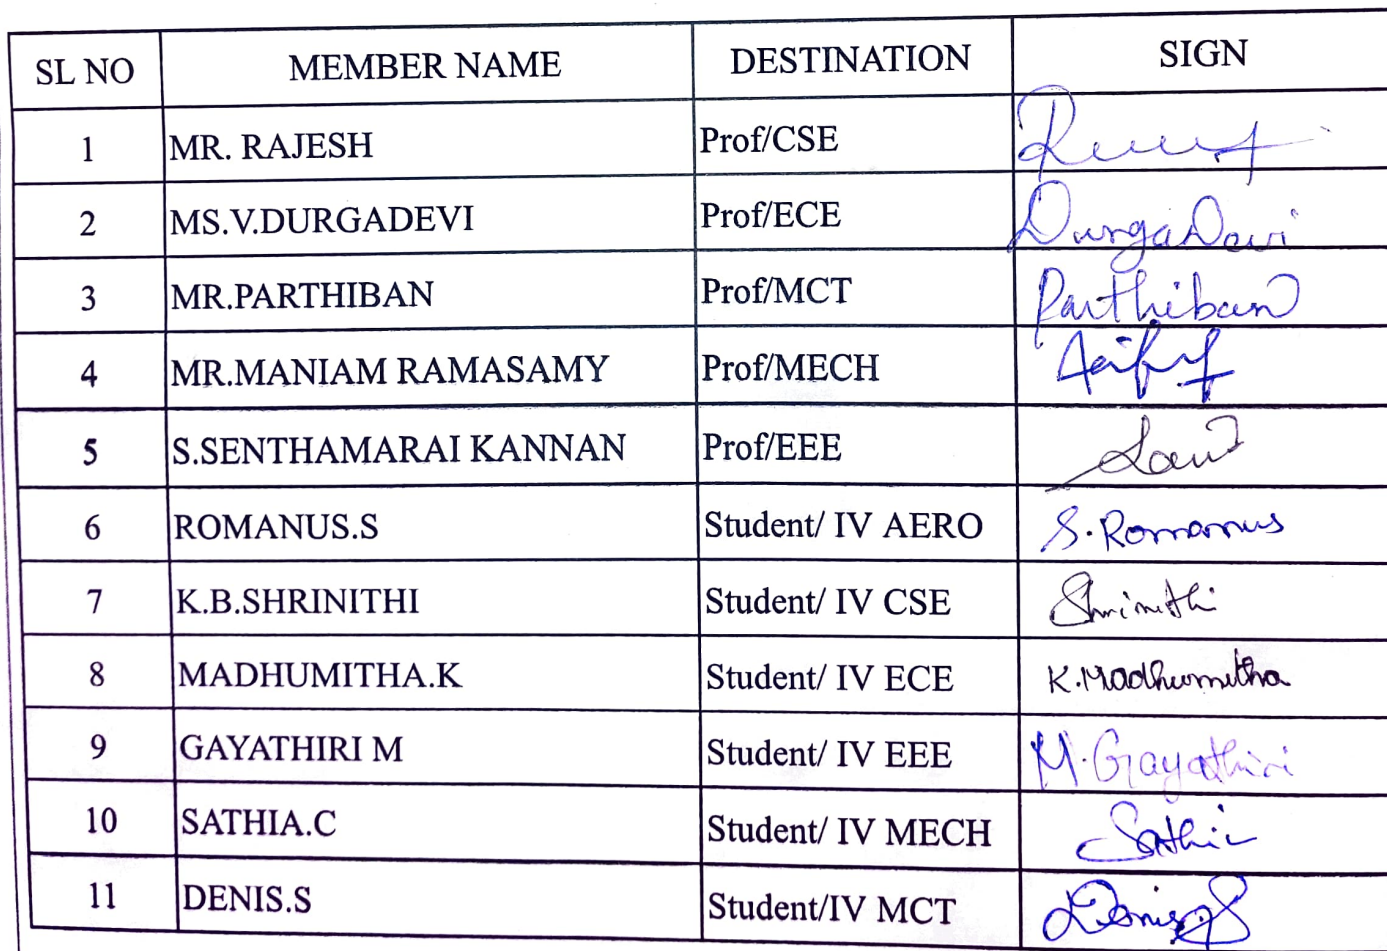 SL NO MEMBER NAME DESTINATION SIGN
1 MR. RAJESH Prof/CSE
2 MS.V.DURGADEVI Prof/ECE DurgaDevi
3 MR.PARTHIBAN Prof/MCT Parthiban
4 MR.MANIAM RAMASAMY Prof/MECH
5 S.SENTHAMARAI KANNAN Prof/EEE
6 ROMANUS.S Student/ IV AERO S.Romanus
7 K.B.SHRINITHI Student/ IV CSE Shrinithi
8 MADHUMITHA.K Student/ IV ECE K.Madhumitha
9 GAYATHIRI M Student/ IV EEE M.Gayathiri
10 SATHIA.C Student/ IV MECH
11 DENIS.S Student/IV MCT